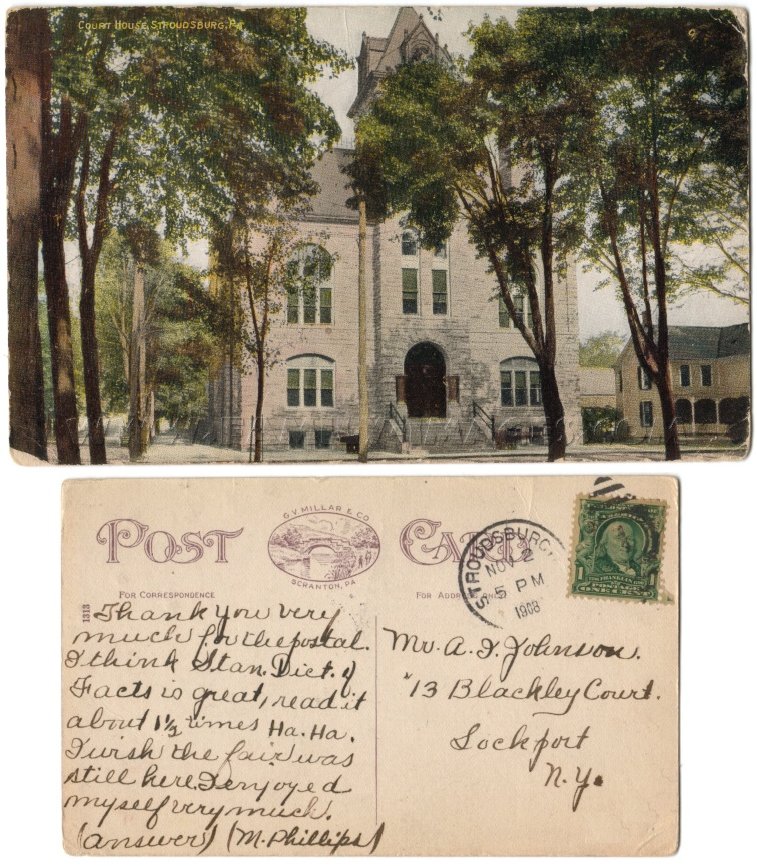 COURT HOUSE, STROUDSBURG, PA.
POST CARD
G. V. MILLAR & CO.
SCRANTON, PA
FOR CORRESPONDENCE
FOR ADDRESS ONLY
1313
STROUDSBURG
NOV 2
5 PM
1908
FRANKLIN
ONE CENT
Thank you very
much for the postal.
I think Stan. Dict. of
Facts is great, read it
about 1½ times Ha. Ha.
I wish the fair was
still here. I enjoyed
myself very much.
(answer) (M. Phillips)
Mr. A. I. Johnson.
#13 Blackley Court.
Lockport
N.Y.